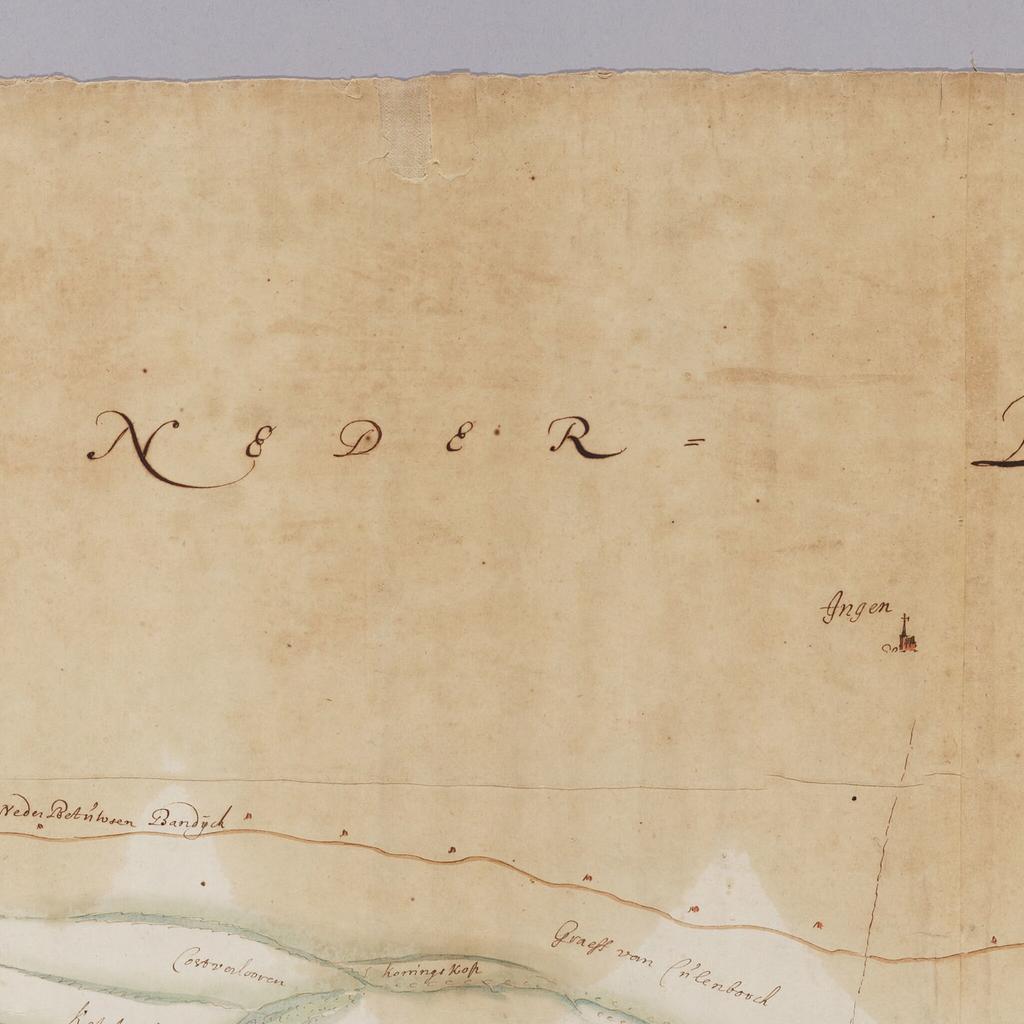 NEDER =
Jngen
Neder Betúwsen Bandÿck
Graeff van Cúlenborch
Costverlooren
konnings Kop